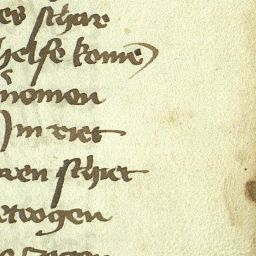 es schar
helfe komē
nomen
Im riet
ren schiet
etrogen